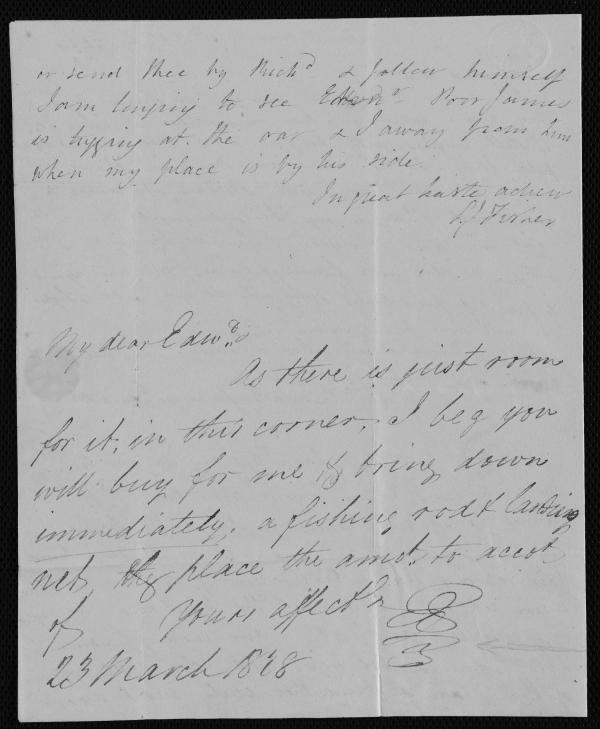 or send thee by Richd & follow himself
I am longing to see Edwd. Poor James
is tugging at the oar & I away from him
when my place is by his side.
In great haste adieu
My dear Edwd.
As there is just room
for it, in this corner, I beg you
will buy for me & bring down
immediately, a fishing rod & landing
net, & place the amot. to accot
of Yours affectly
23 March 1828